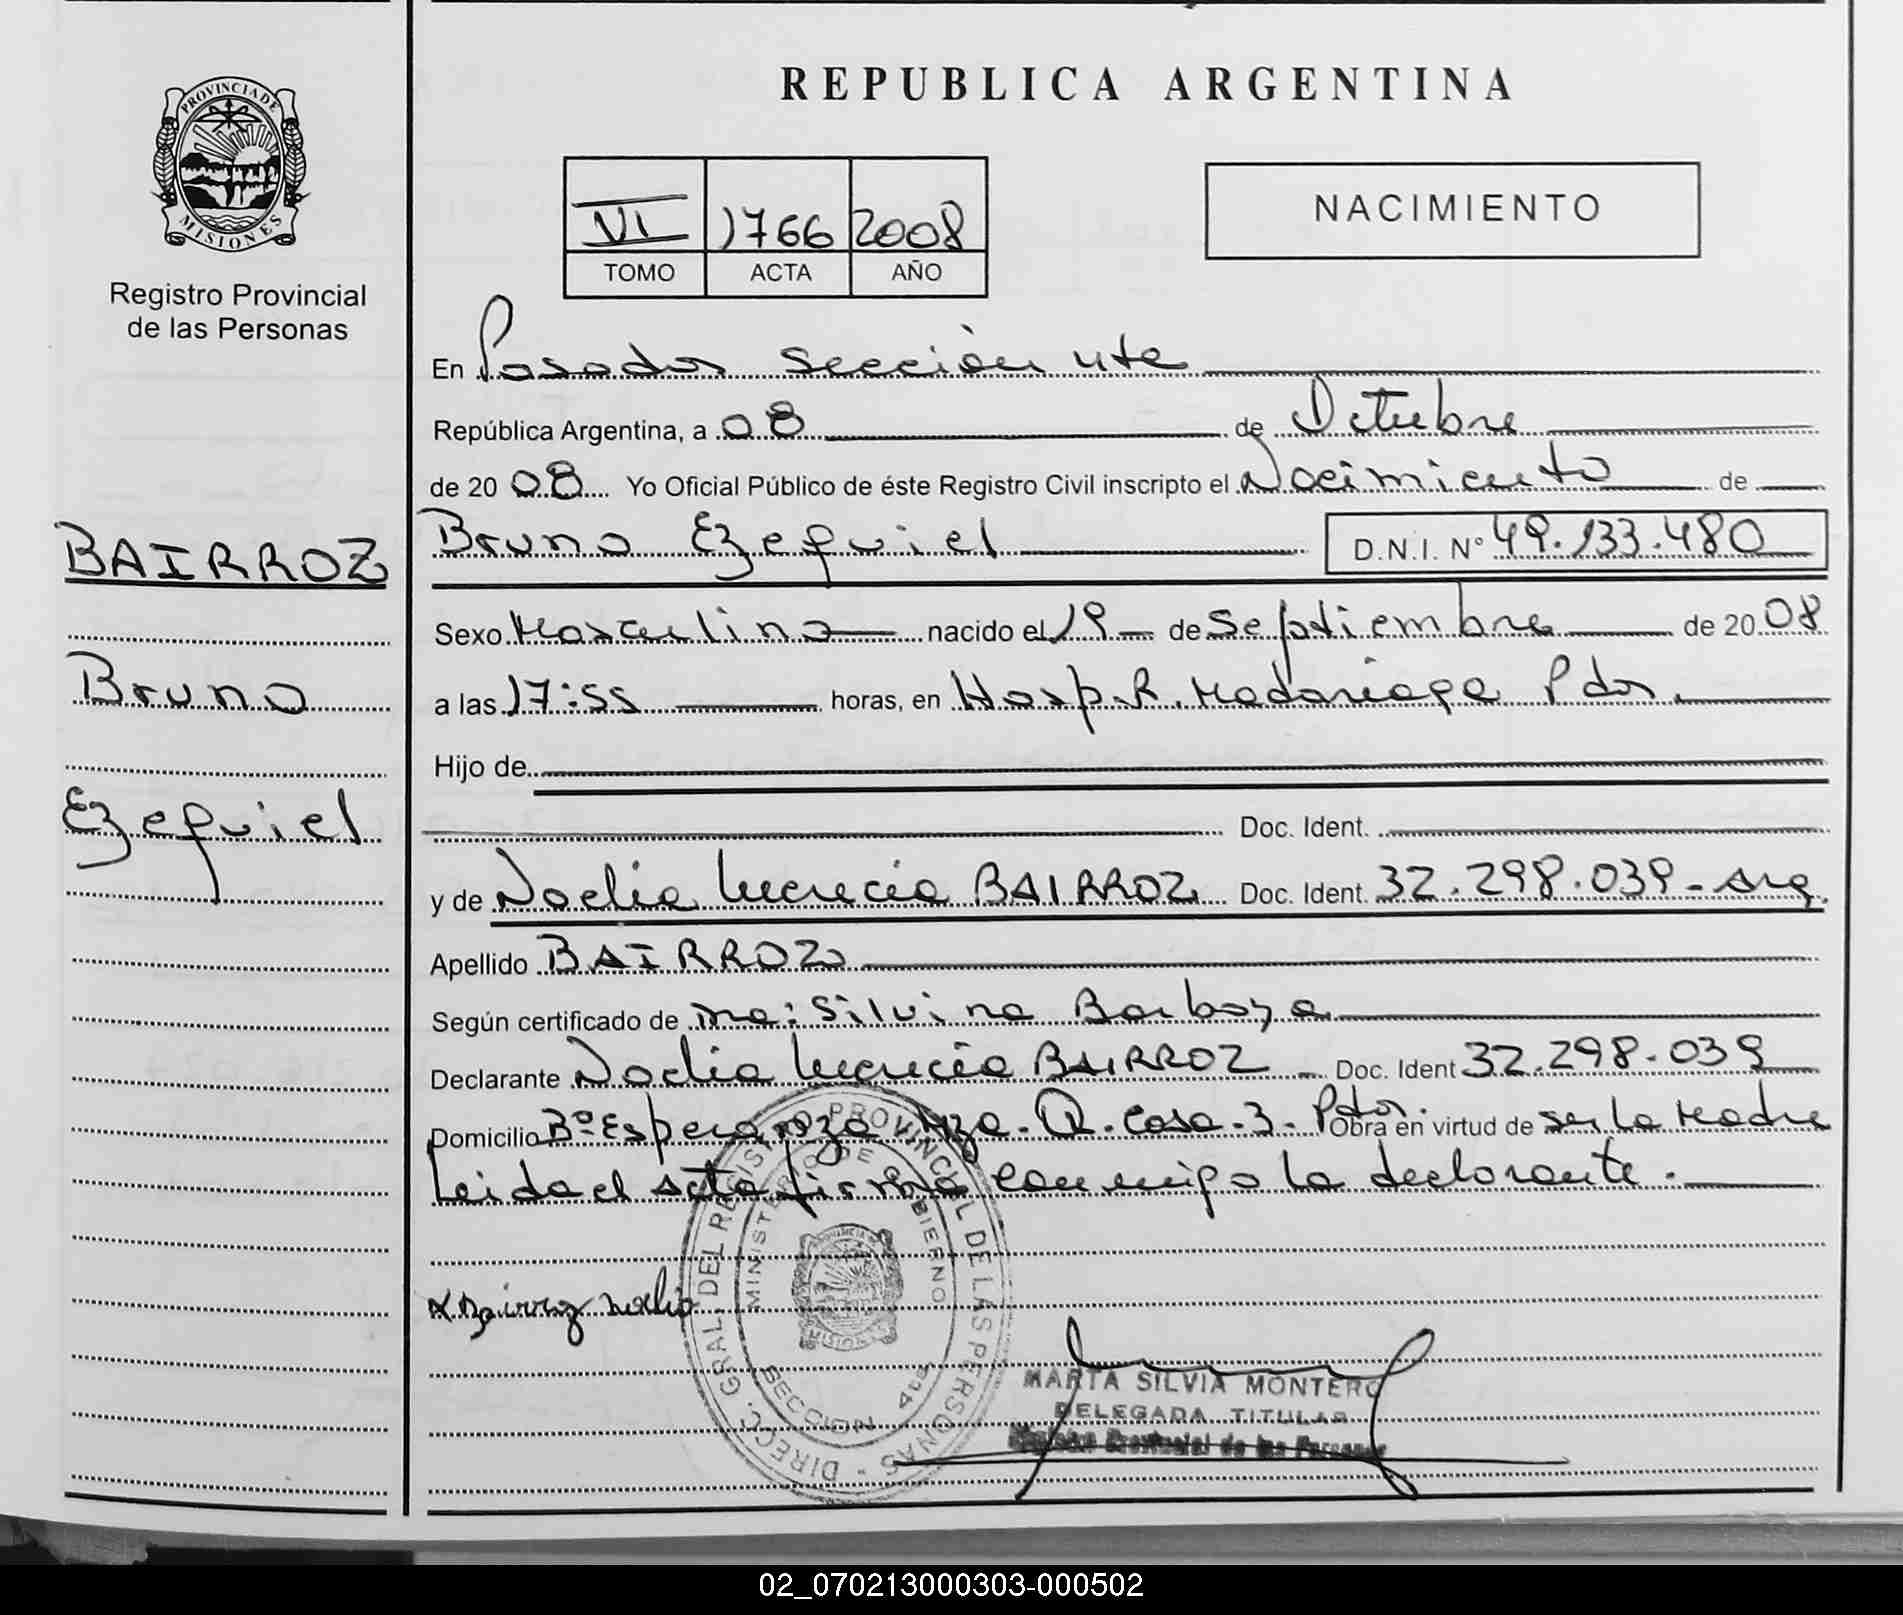 REPUBLICA ARGENTINA
PROVINCIA DE
MISIONES
Registro Provincial
de las Personas
VI 1766 2008
TOMO ACTA AÑO
NACIMIENTO
En Posadas Sección 4ta
República Argentina, a 08 de Octubre
de 20 08 Yo Oficial Público de éste Registro Civil inscripto el Nacimiento de
Bruno Ezequiel D.N.I. Nº 49.133.480
BAIRROZ
Bruno
Ezequiel
Sexo Masculino nacido el 19 de Septiembre de 20 08
a las 17:55 horas, en Hosp. R. Madariaga Pdas.
Hijo de
Doc. Ident.
y de Noelia Lucrecia BAIRROZ Doc. Ident. 32.298.039 - Arg.
Apellido BAIRROZ
Según certificado de Ma: Silvina Barboza
Declarante Noelia Lucrecia BAIRROZ Doc. Ident 32.298.039
Domicilio Bº Esperanza Mza. Q. Casa. 3. Pdas. Obra en virtud de ser la Madre
Leida el acta firma conmigo la declarante.
Bairroz Noelia
DIRECC. GRAL. DEL REGISTRO PROVINCIAL DE LAS PERSONAS
MINISTERIO DE GOBIERNO
PROVINCIA DE
MISIONES
SECCION 4ta
MARTA SILVIA MONTERO
DELEGADA TITULAR
Registro Provincial de las Personas
02_070213000303-000502